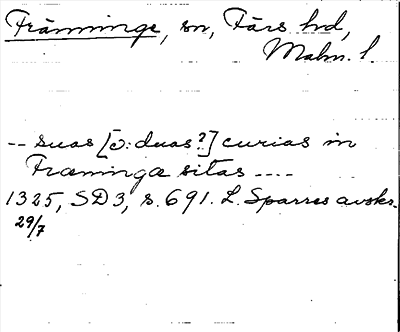 Främminge, sn, Färs hd,
Malm. l.
-- suas [ɔ: duas?] curias in
Fræminga sitas ----
1325, SD3, s. 691. L. Sparres avskr.
29/7